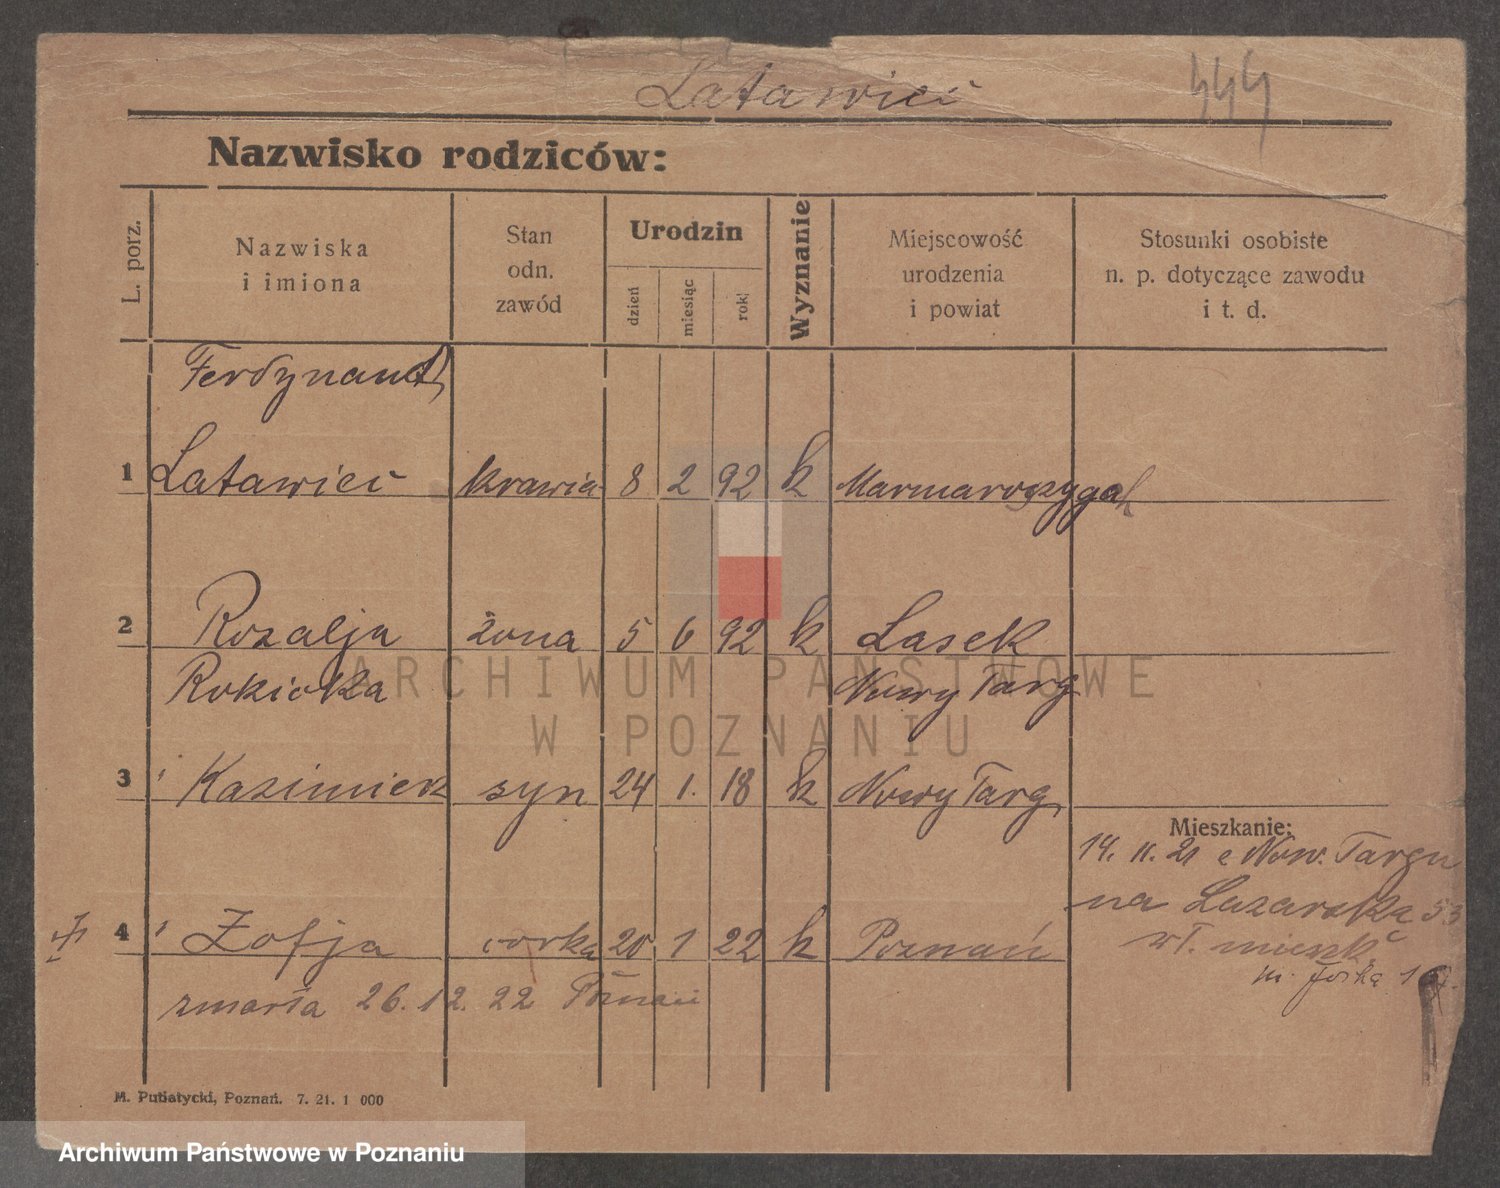 Latawiec
444
Nazwisko rodziców:
L. porz.
Nazwiska
i imiona
Stan
odn.
zawód
Urodzin
dzień
miesiąc
rok
Wyznanie
Miejscowość
urodzenia
i powiat
Stosunki osobiste
n. p. dotyczące zawodu
i t. d.
Ferdynand
1 Latawiec krawiec 8 2 92 k
2 Rozalja żona 5 6 92 k Lasek
Rokicka Nowy Targ
3 Kazimierz syn 24 1. 18 k Nowy Targ
Mieszkanie:
14. 11. 21 z Now. Targu
na Łazarską 53
4 Zofja córka 20 1 22 k Poznań
wł. mieszk.
zmarła 26. 12. 22 Poznań
M. Putiatycki, Poznań. 7. 21. 1 000
ARCHIWUM PAŃSTWOWE
W POZNANIU
Archiwum Państwowe w Poznaniu